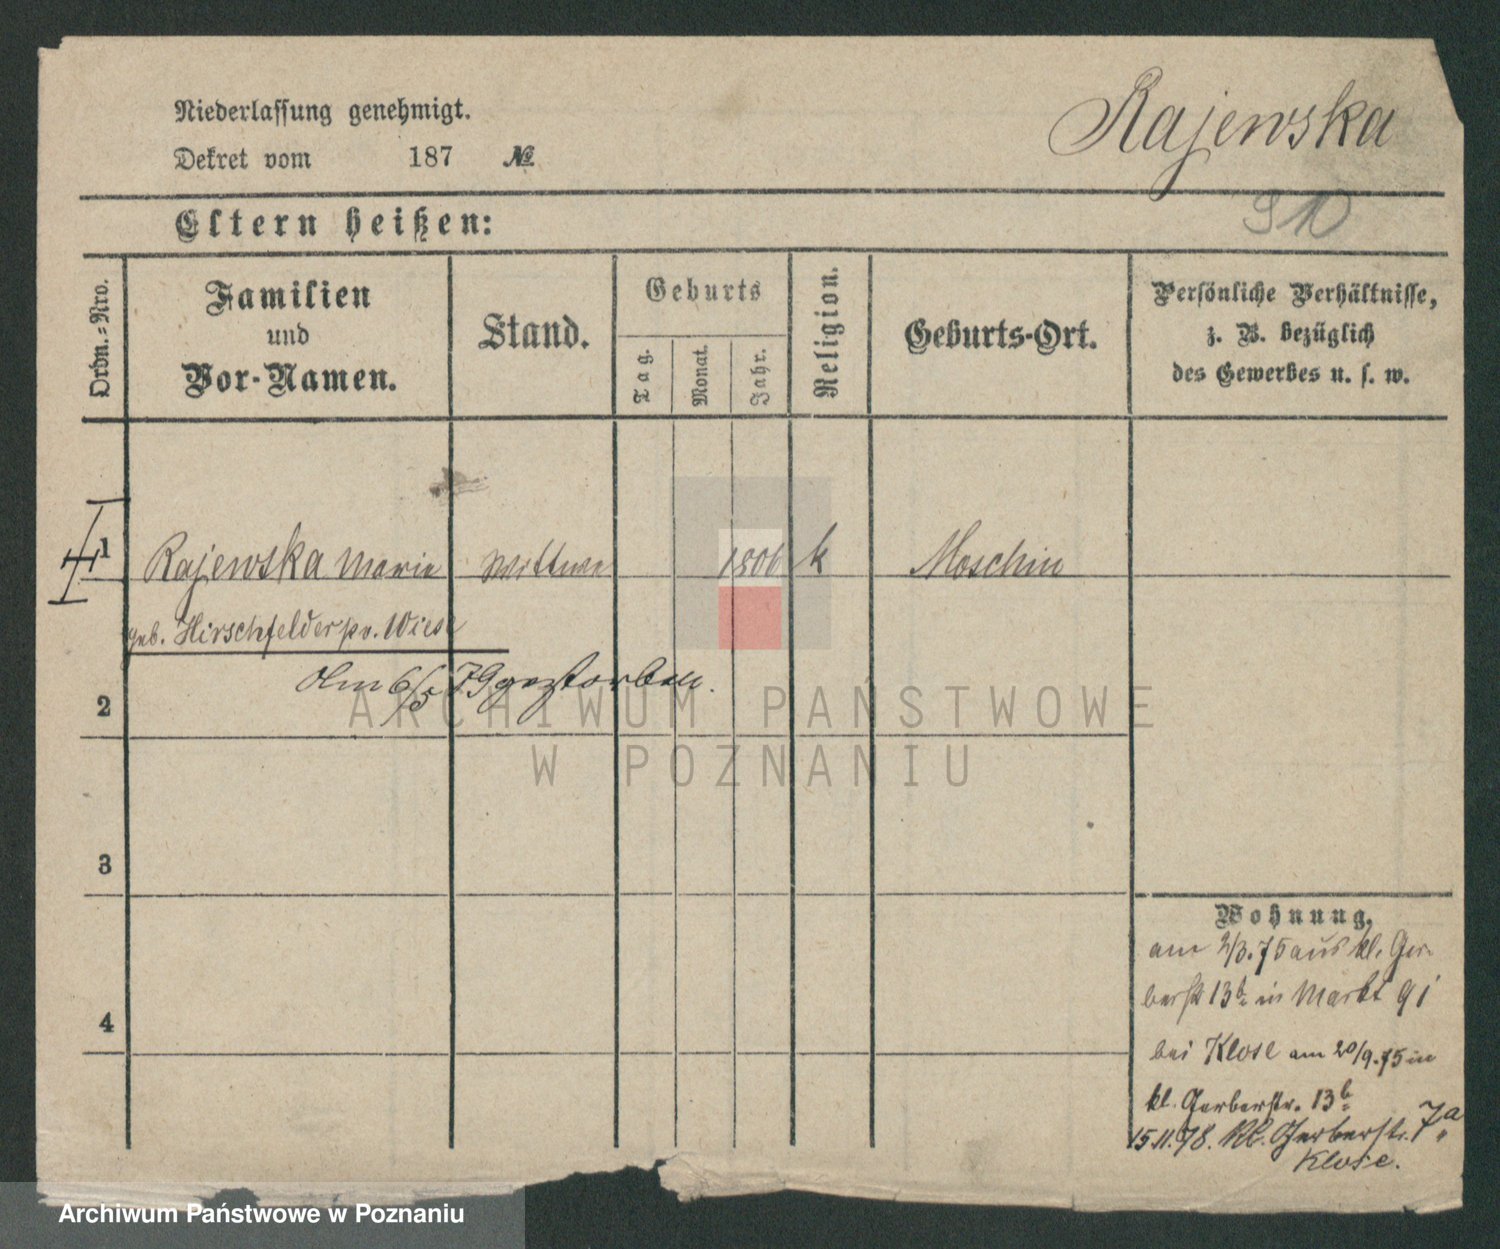 Niederlassung genehmigt.
Dekret vom 187 №
Rajewska
Eltern heißen:
Ordn.=Nro.
Familien
und
Vor-Namen.
Stand.
Geburts
Tag.
Monat.
Jahr.
Religion.
Geburts-Ort.
Persönliche Verhältnisse,
z. B. bezüglich
des Gewerbes u. s. w.
1 Rajewska Marie Wittwe 1806 k Moschin
geb. Hirschfelder pv. Wiese
Am 6/5 79 gestorben.
2
3
4
Wohnung,
am 2/3. 75 aus kl. Ger-
berstr 13b in Markt 91
bei Klose am 20/9. 75 in
kl. Gerberstr. 13b
15.11.78. Kl. Gerberstr. 7a
Klose.
ARCHIWUM PAŃSTWOWE
W POZNANIU
Archiwum Państwowe w Poznaniu